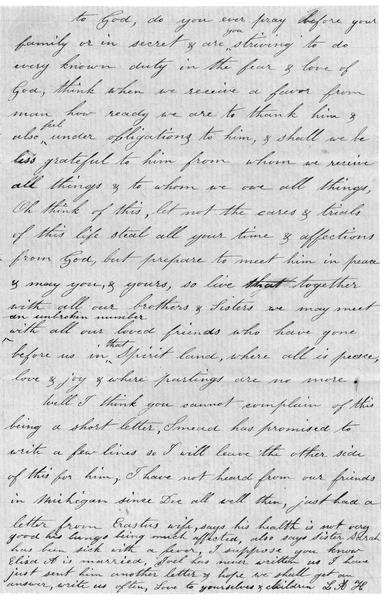 to God, do you ever pray before your
family or in secret & are you striving to do
every known duty in the fear & love of
God, think when we receive a favor from
man how ready we are to thank him &
also feel under obligations to him, & shall we be
less grateful to him from whom we receive
all things & to whom we owe all things,
Oh think of this, let not the cares & trials
of this life steal all your time & affections
from God, but prepare to meet him in peace
& may you, & yours, so live that together
with all our brothers & Sisters we may meet
an unbroken number
with all our loved friends who have gone
before us in that Spirit land, where all is peace,
love & joy & where partings are no more
Well I think you cannot complain of this
being a short letter, Smead has promised to
write a few lines so I will leave the other side
of this for him, I have not heard from our friends
in Michigan since Dec all well then, just had a
letter from Erastus wife, says his health is not very
good his lungs being much affected, also says sister Sarah
has been sick with a fever, I suppose you know
Eliza A is married, Joel has never written us I have
just sent him another letter & hope we shall get an
answer, write us often, Love to yourselves & children L. A. H